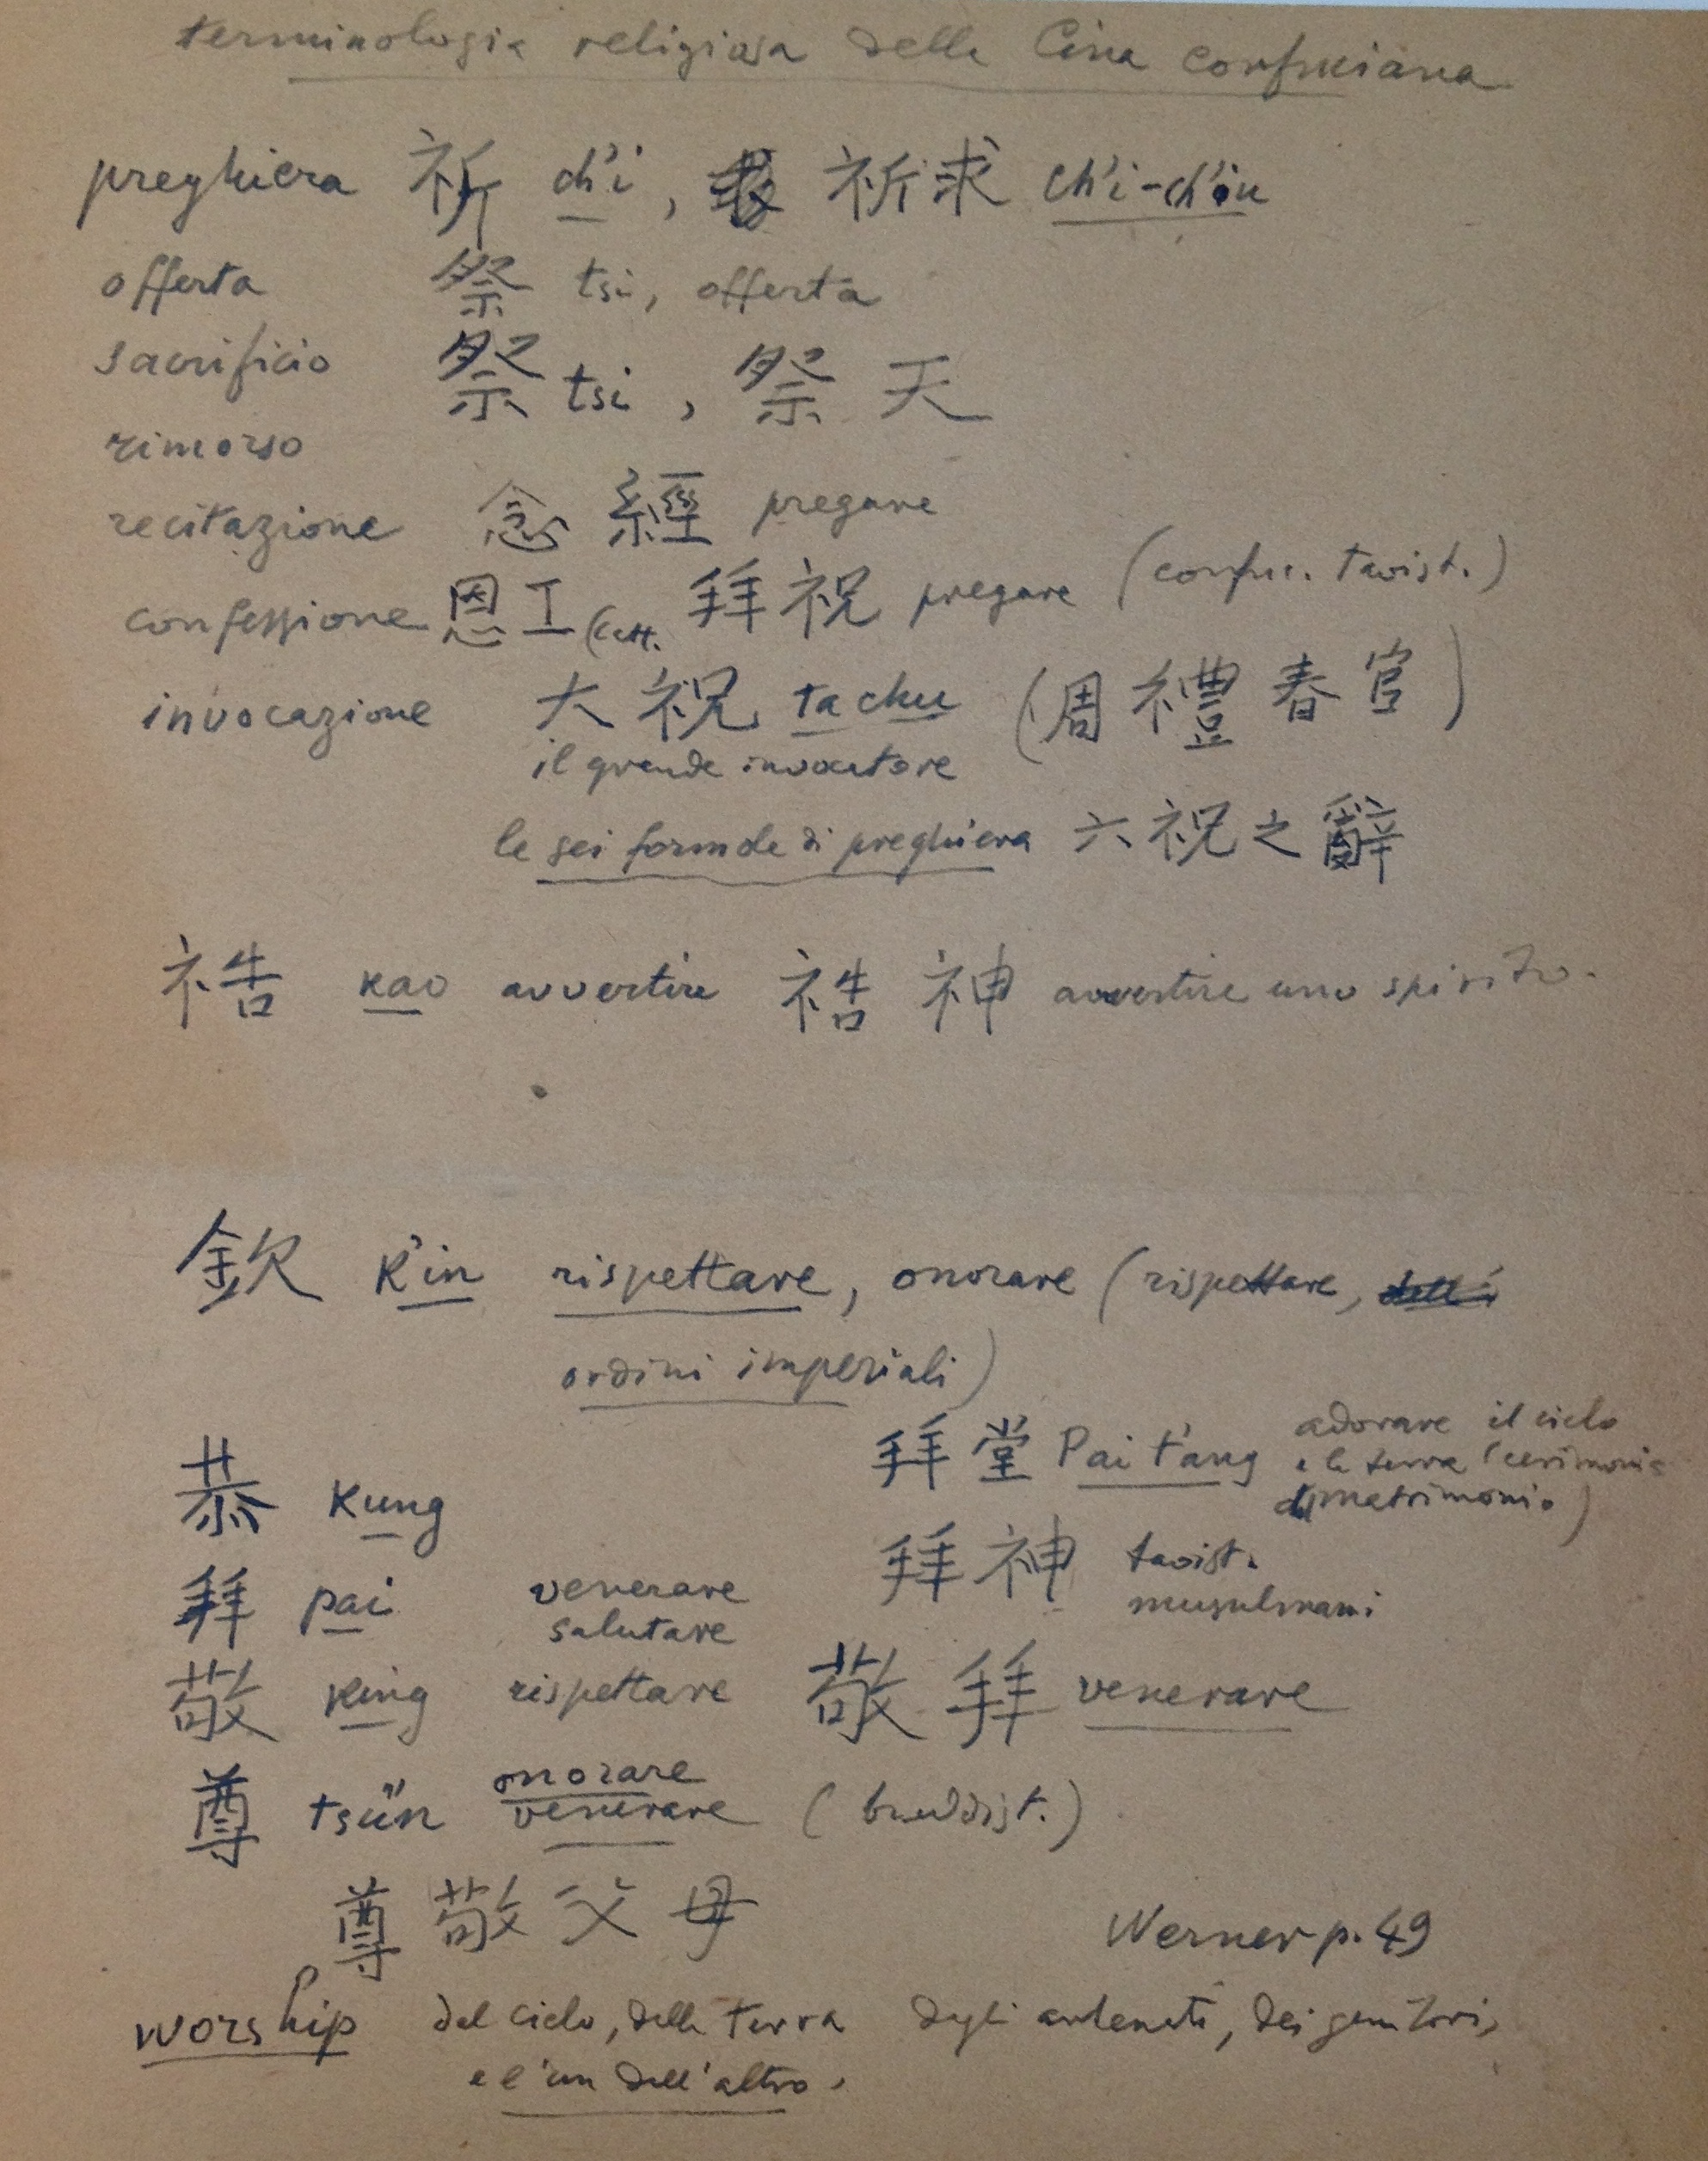 terminologia religiosa della Cina confuciana
preghiera 祈 ch'i, 祈求 ch'i-ch'iu
offerta 祭 tsi, offerta
sacrificio 祭 tsi, 祭天
rimorso
recitazione 念經 pregare
confessione 恩工 (Catt. 拜祝 pregare (confuc. taoist.)
invocazione 大祝 ta chu (周禮春官)
il grande invocatore
le sei formole di preghiera 六祝之辭
祰 kao avvertire 祰神 avvertire uno spirito.
欽 k'in rispettare, onorare (rispettare,
ordini imperiali)
恭 kung
拜堂 Pai t'ang adorare il cielo
e la terra (cerimonia
di matrimonio)
拜 pai venerare
salutare
拜神 taoist.
musulmani
敬 king rispettare 敬拜 venerare
尊 tsün onorare
venerare (buddist.)
尊敬父母
Werner p. 49
worship del cielo, della terra degli antenati, dei genitori,
e l'un dell'altro.